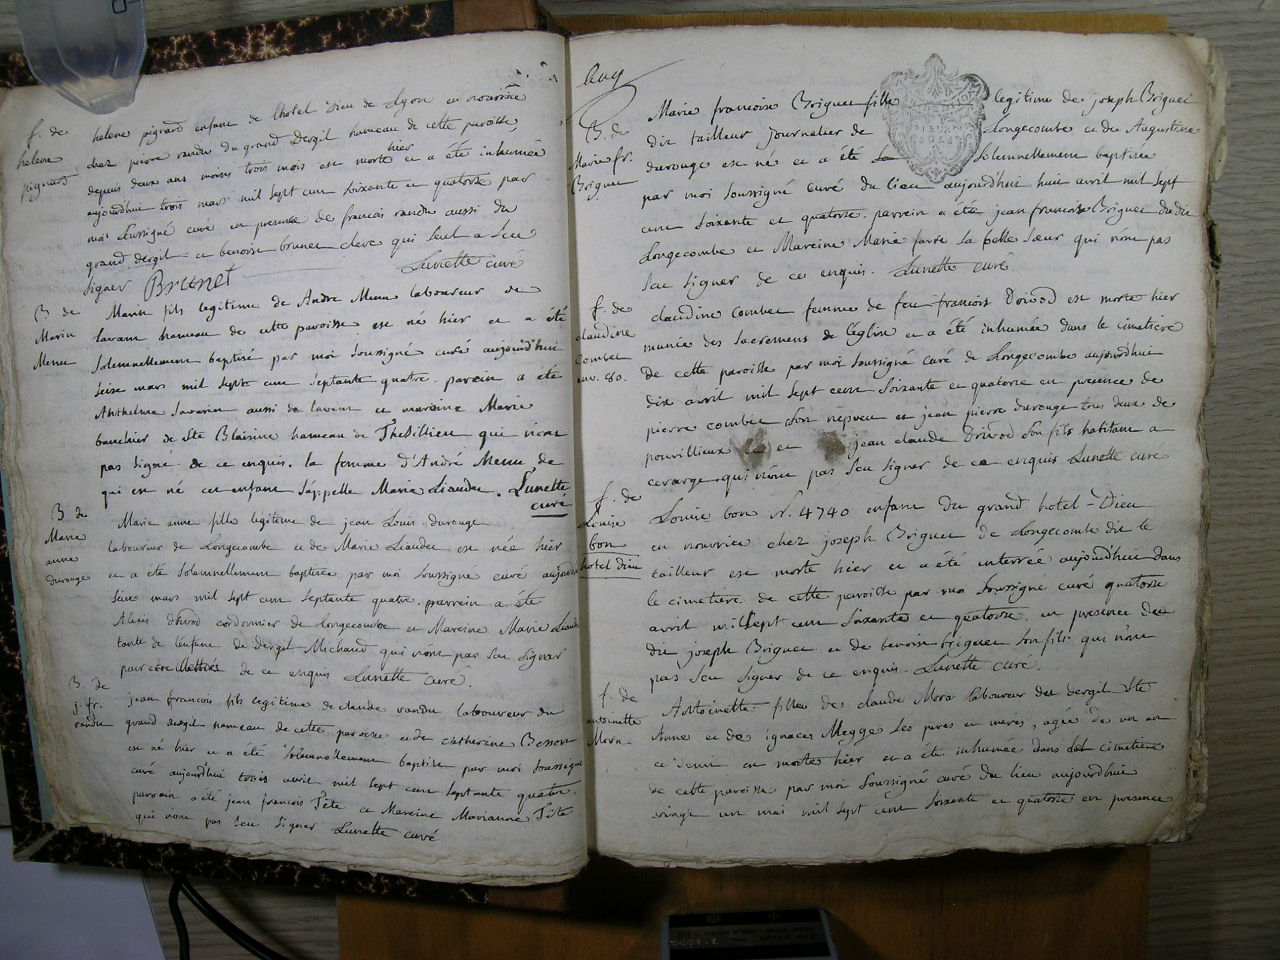 f. de
helene
pignard
helene pignard enfant de l'hotel dieu de Lyon en nourrice
chez pierre vandu du grand Dergil hameau de cette paroisse,
depuis deux ans moins trois mois est morte hier et a été inhumée
aujourdhui trois mars mil sept cent soixante et quatorze par
moi soussigné curé en presence de francois vandu aussi du
grand dergil et benoist brunet clerc qui seul a scu
signer Brunet Lunette curé
B. de
Marin
Menu
Marin fils legitime de Andre Menu laboureur de
lavant hameau de cette paroisse est né hier et a été
solemnellement baptisé par moi soussigné curé aujourd'hui
seise mars mil sept cent septante quatre. parein a été
Anthelme Savarin aussi de lavant et mareine Marie
bauchier de Ste Blaisine hameau de Thesillieu qui n'ont
pas signé de ce enquis. la femme d'André Menu de
qui est né cet enfant s'appelle Marie Liaudet. Lunette
curé
B. de
Marie
anne
durouge
Marie anne fille legitime de jean Louis durouge
laboureur de Longecombe et de Marie Liaudet est née hier
et a été solemnellement baptisée par moi soussigné curé aujourd
seise mars mil sept cent septante quatre. parrein a été
Alexis doivod cordonnier de longecombe et Mareine Marie Liaudet
tante de l'enfant de dergil Michaud qui n'ont pas scu signer
pour etre illettrés de ce enquis Lunette curé.
B. de
j. fr.
vandu
jean francois fils legitime de claude vandu laboureur du
grand dergil hameau de cette paroisse et de catherine Besson
est né hier et a été solennellement baptisé par moi soussigné
curé aujourd'hui trois avril mil sept cent septante quatre.
parrain a été jean francois Tête et Mareine Marianne Tête
qui n'ont pas scu signer Lunette curé
B. de
Marie fr.
Briguet
Marie francoise Briguet fille legitime de joseph Briguet
dit tailleur journalier de Longecombe et de Augustine
durouge est né et a été solemnellement baptisée
par moi soussigné curé du lieu aujourd'hui huit avril mil sept
cent soixante et quatorze. parrein a été jean francois Briguet du dit
Longecombe et Mareine Marie sa belle sœur qui n'ont pas
scu signer de ce enquis. Lunette curé.
f. de
claudine
combet
env. 80.
claudine combet femme de feu francois doivod est morte hier
munie des sacremens de l'église et a été inhumée dans le cimetiere
de cette paroisse par moi soussigné curé de Longecombe aujourdhui
dix avril mil sept cent soixante et quatorze en presence de
pierre combet son nepveu et jean pierre durouge tous deux de
pourvillieux et jean claude doivod son fils habitant a
qui n'ont pas scu signer de ce enquis Lunette curé
f. de
Louise
bon
hotel dieu
Louise bon N. 4740 enfant du grand hotel-Dieu
en nourrice chez joseph Briguet de Longecombe dit le
tailleur est morte hier et a été enterrée aujourdhui dans
le cimetiere de cette paroisse par moi soussigné curé quatorze
avril mil sept cent soixante et quatorze. en presence du
dit joseph Briguet et de benoist briguet son fils qui n'ont
pas scu signer de ce enquis. Lunette curé.
f. de
antoinette
Mora
Antoinette fille de claude Mora laboureur de dergil
Anne et de ignace Megge ses pere et mere, agée de un an
et demi est morte hier et a été inhumée dans le cimetiere
de cette paroisse par moi soussigné curé du lieu aujourdhui
vingt un mai mil sept cent soixante et quatorze en presence